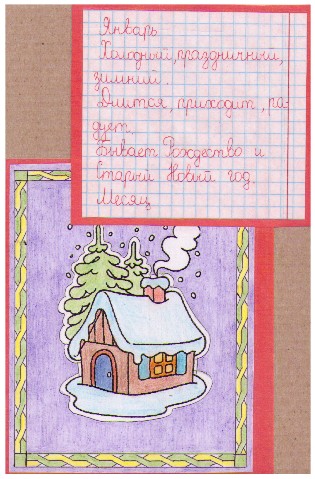 Январь
Холодный, праздничный,
зимний.
Длится, приходит, ра-
дует.
Бывает Рождество и
Старый Новый год.
Месяц